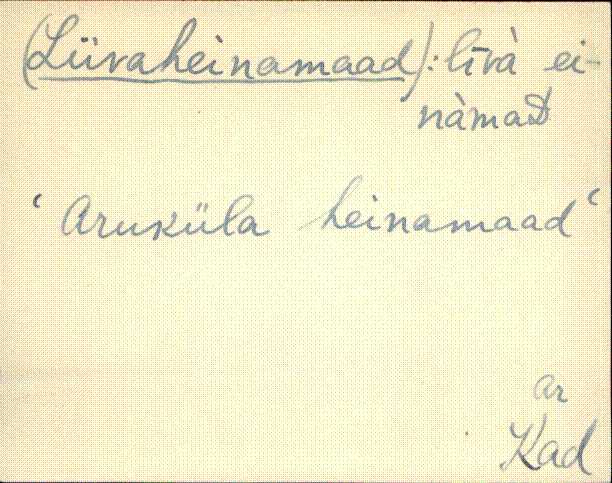 (Liivaheinamaad): līvà ei-
nàmaD
‘Aruküla heinamaad‘
ar
Kad